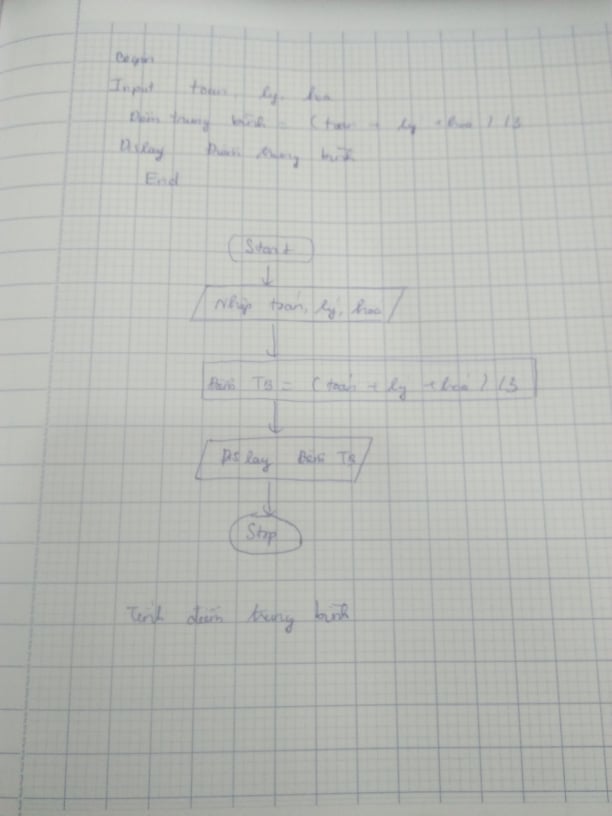 Begin
Input toan, ly, hoa
Điểm trung bình = (toán + lý + hoa) /3
Dislay Điểm trung bình
End
Start
Nhập toán, lý, hoa
Điểm TB = (toán + lý + hoá) /3
Dislay Điểm TB
Stop
Tính điểm trung bình